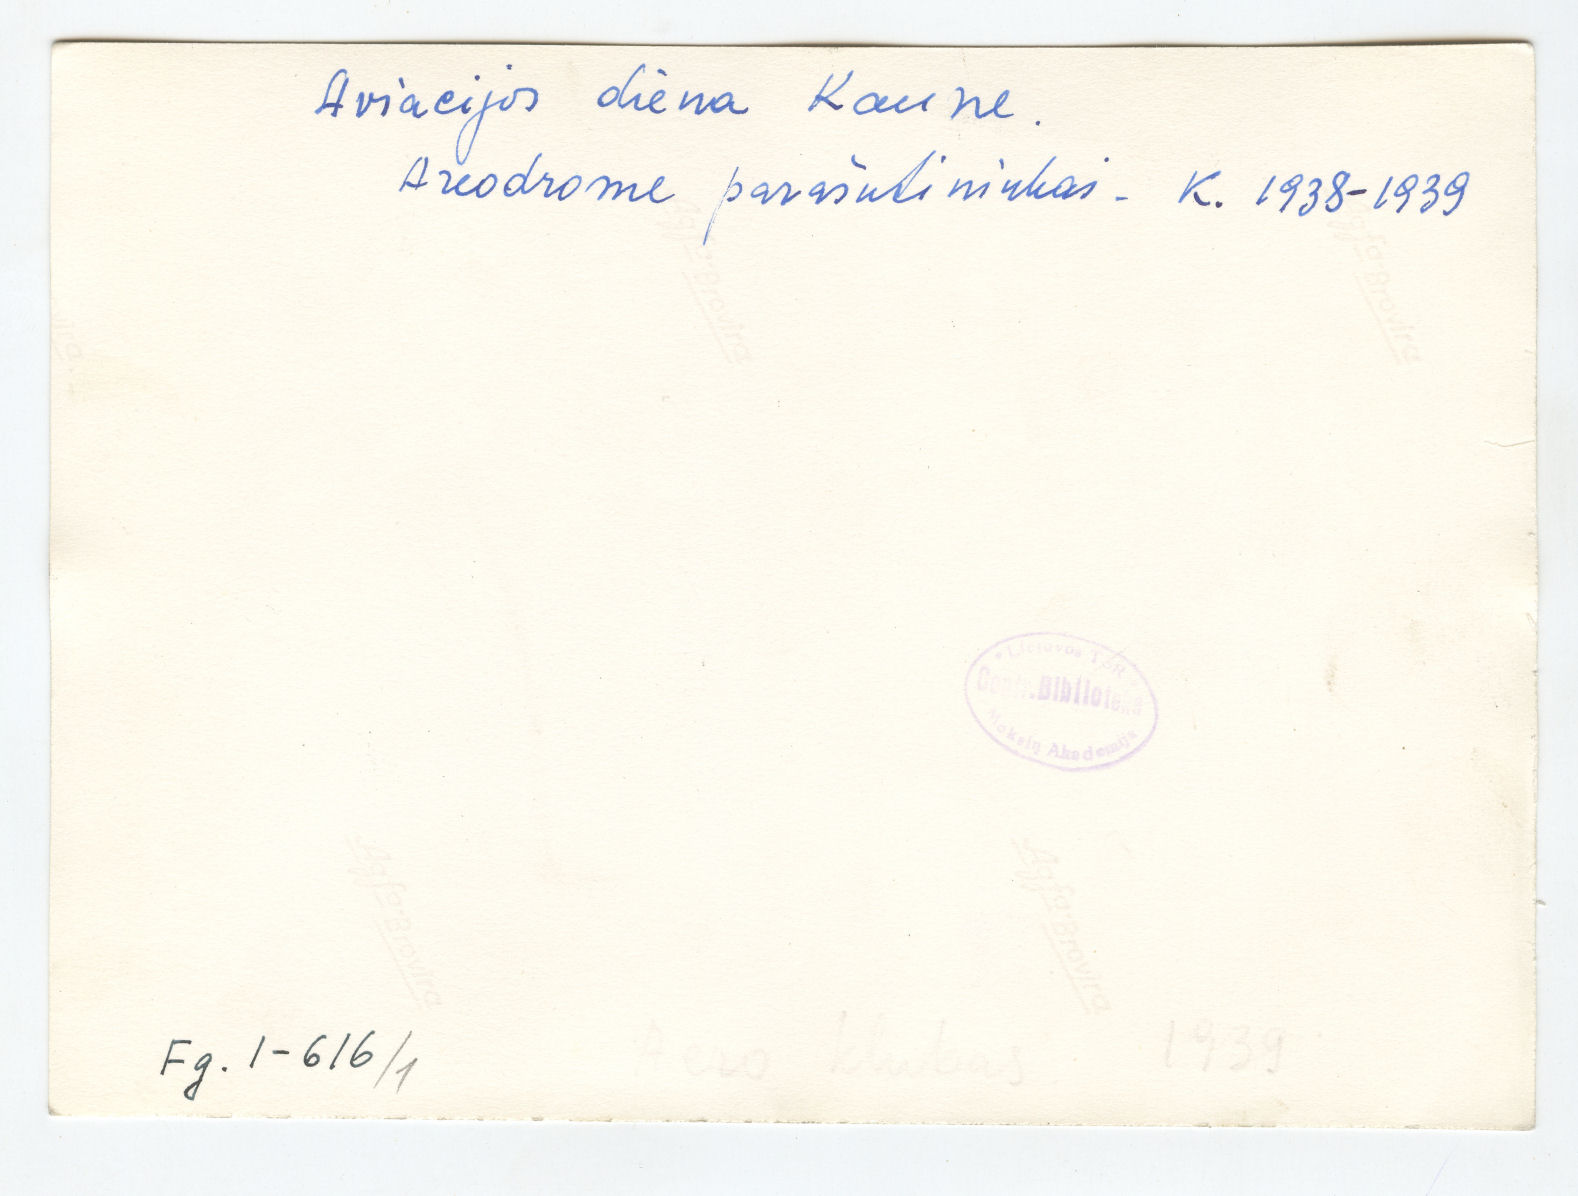 Aviacijos diena Kaune.
Areodrome parašutininkai - K. 1938-1939
Agfa-Brovira
Agfa-Brovira
ira
* Lietuvos TSR *
Centr. Biblioteka
Mokslų Akademija
Agfa-Brovira
Agfa-Brovira
Aero klubas 1939
Fg. 1-616/1